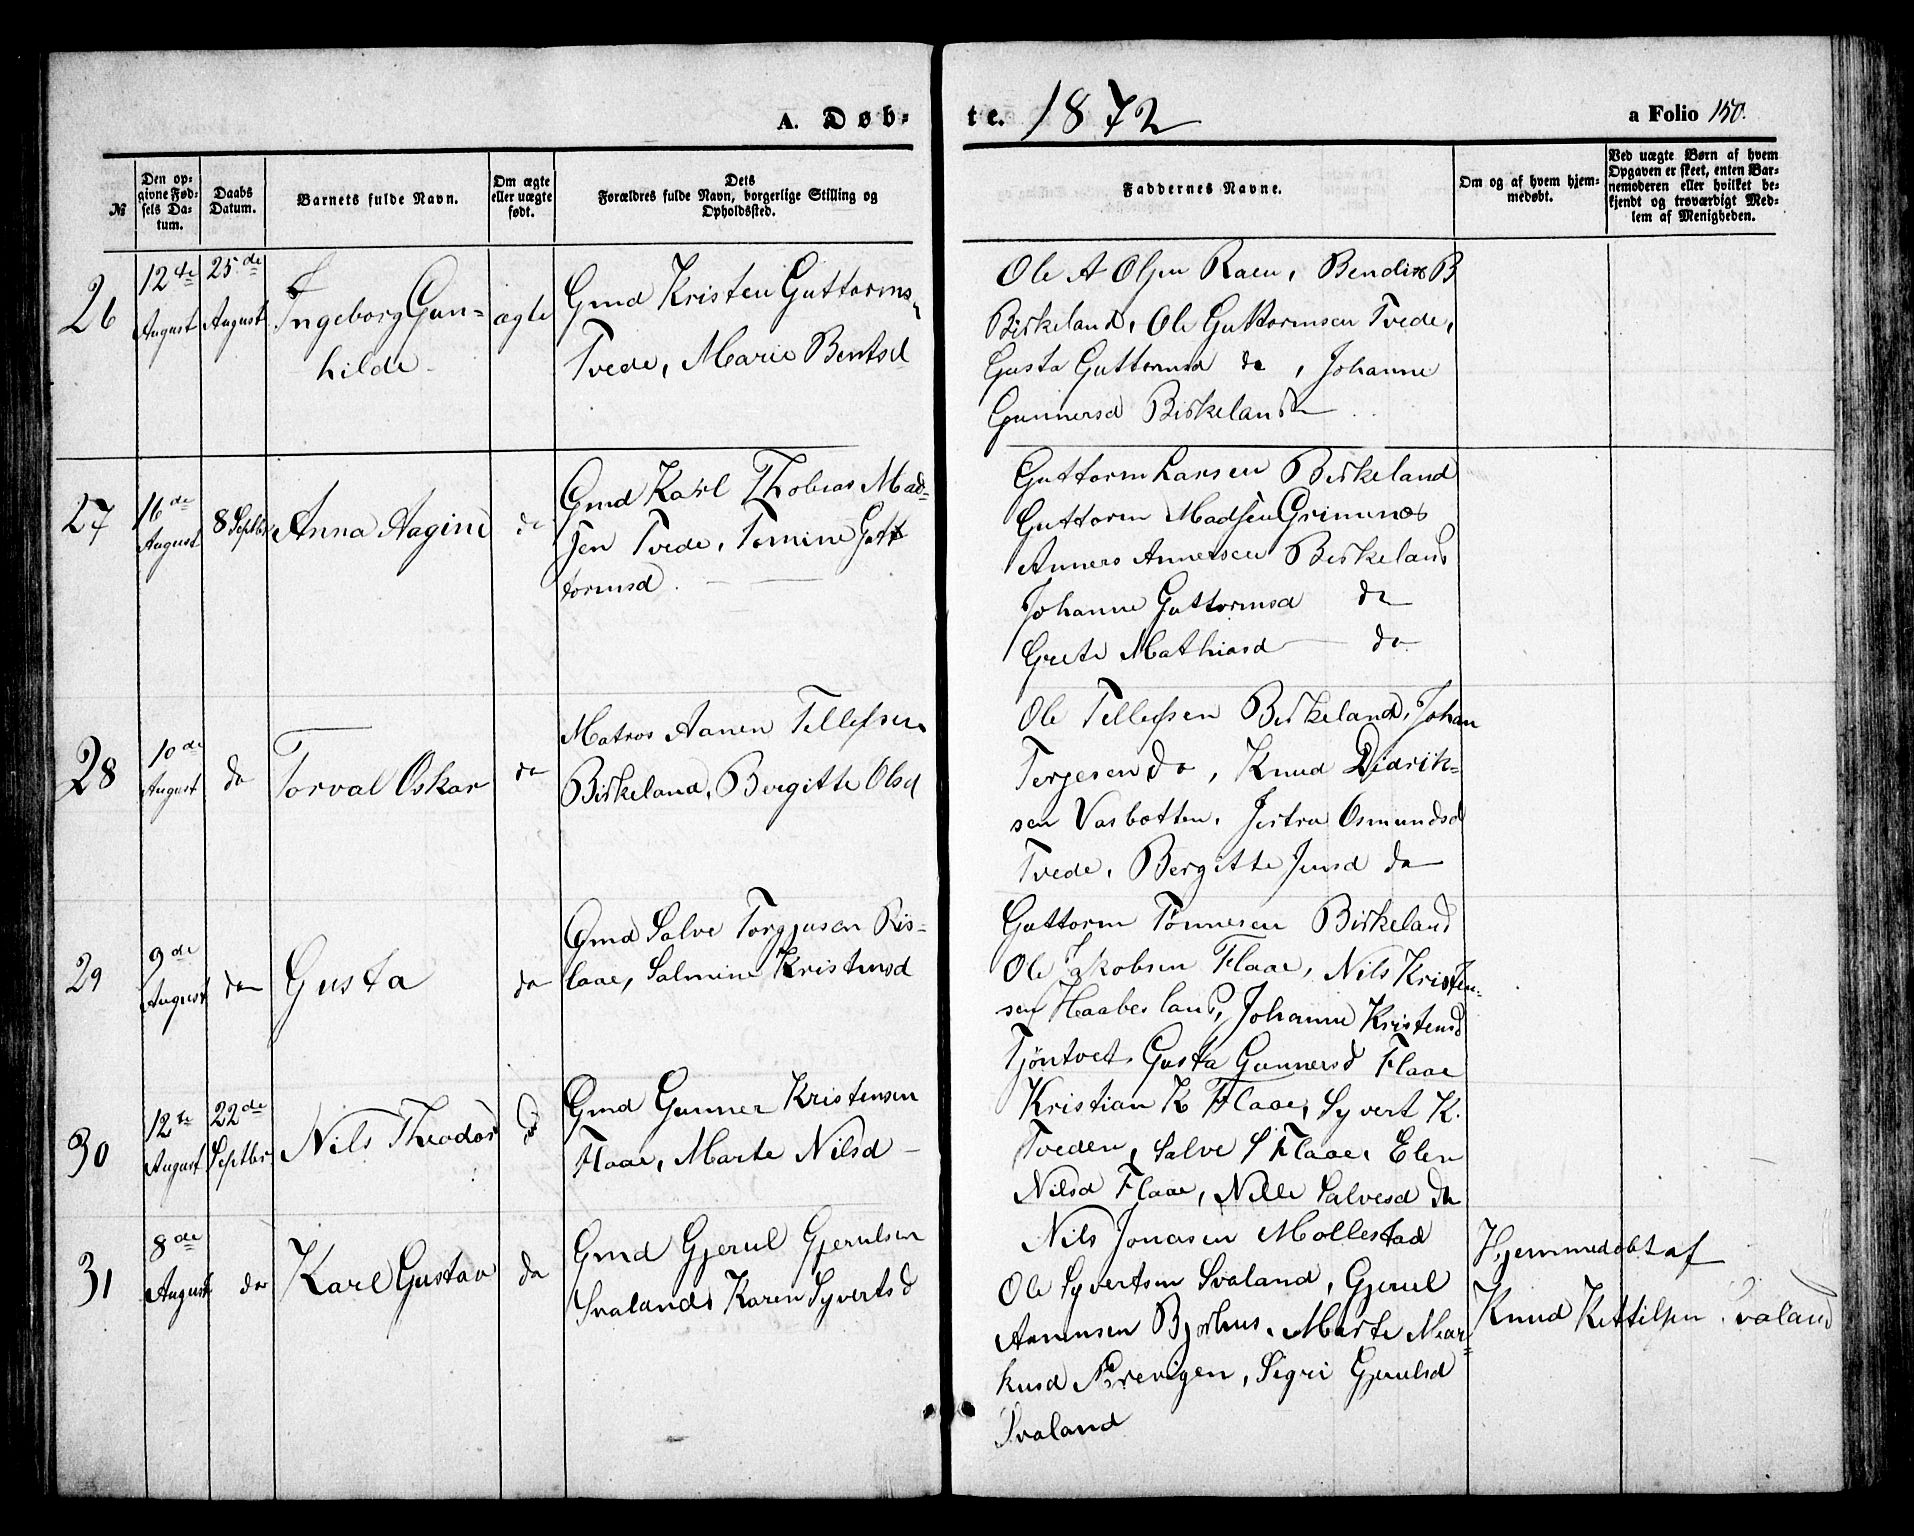 A. Døb-
te. 1872
a Folio 150.
№
Den op-
givne Fød-
sels Da-
tum.
Daabs
Datum.
Barnets fulde Navn.
Om ægte
eller uægte
født.
Dets
Forældres fulde Navn, borgerlige Stilling og
Opholdssted.
Faddernes Navne.
Om og af hvem hjem-
medøbt.
Ved uægte Børn af hvem
Opgaven er skeet, enten Bar-
nemoderen eller hvilket be-
kjendt og troværdigt Med-
lem af Menigheden.
26
12te
August
25de
August
Ingeborg Gun-
hilde
ægte
Gmd Kristen Guttorms.
Tvede, Marie Bentsd
Ole A Olsen Raen, Bendix B
Birkeland, Ole Guttormsen Tvede,
Gusta Guttormsd do, Johanne
Gunnersd Birkeland
27
16de
August
8 Septbr
Anna Aagine
do
Gmd Karl Thobias Mad-
sen Tvede, Tomine Gutt
tormsd
Guttorm Larsen Birkeland
Guttorm Madsen Grimnes
Anners Annersen Birkeland
Johanne Guttormsd do
Grete Mathiasd do
28
10de
August
do
Torval Oskar
do
Matros Aanen Tellefsen
Birkeland, Bergitte Olsd
Ole Tellefsen Birkeland, Johan
Terjesen do, Knud Didrik-
sen Vasbotten, Jertru Osmundsd
Tvede, Bergitte Jensd do
29
9de
August
do
Gusta
do
Gmd Salve Torgjusen Ris-
laae, Salmine Kristensd
Guttorm Tønnesen Birkeland
Ole Jakobsen Flaae, Nils Kristen-
sen Haabesland, Johanne Kristensd
Tjöntvet, Gusta Gunnersd Flaae
30
12te
August
22de
Septbr.
Nils Theodor
do
Gmd Gunner Kristensen
Flaae, Marte Nilsd
Kristian K Flaae, Syvert K.
Tveden, Salve S Flaae, Elen
Nilsd Flaae, Nille Salvesd do
31
8de
August
do
Karl Gustav
do
Gmd Gjerul Gjerulsen
Svaland, Karen Syvertsd
Nils Jonasen Mollestad
Ole Syvertsen Svaland, Gjerul
Aanensen Bjorhus, Marte Mar-
kusd Berevigen, Sigri Gjerulsd
Svaland
Hjemmedøbt af
Knud Kittilsen Svaland